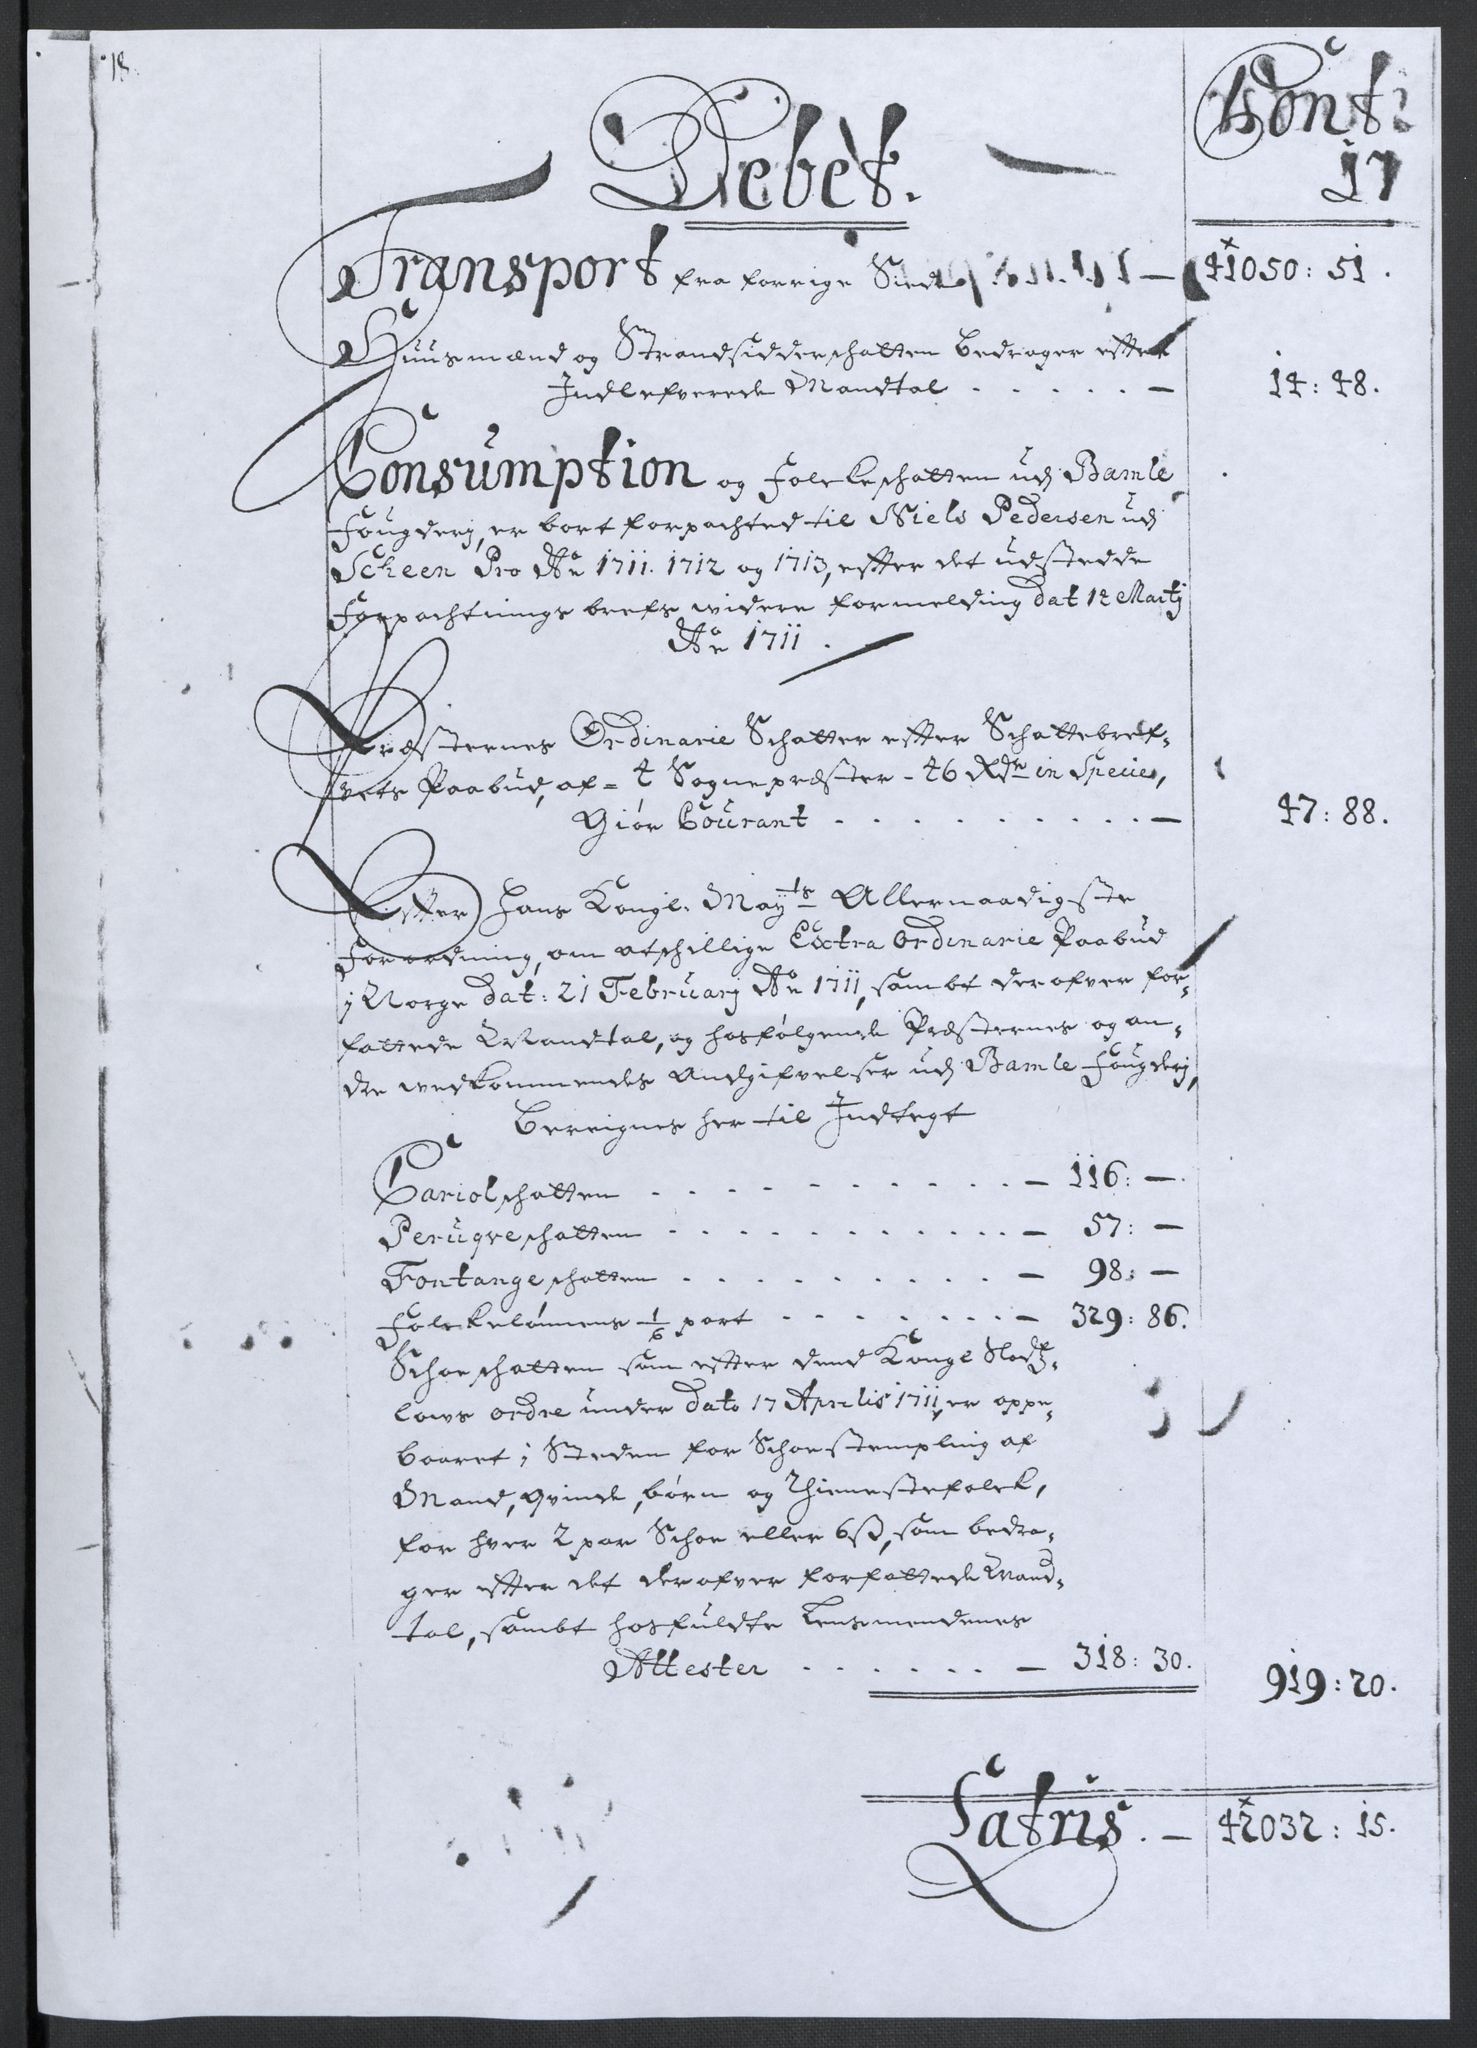 18.
Conti
17
Debet.
Transport fra forrige Siide — 41050: 51.
Huusmænd og Strandsidderschatten bedrager effter
Indlefverede Mandtal . . . . . — 14: 48.
Consumption og Folckeschatten udj Bamle
Fougderj, er bort forpachted til Niels Pedersen udj
Scheen Pro Ao 1711. 1712 og 1713, effter det udstedde
Forpachtnings brefs widere formelding dat 14 Martj
Ao 1711.
Præsternes Ordinarie Schatter effter Schattebref-
vets Paabud, af - 4 Sognepræster - 46 Rdr in Specie,
Giør Courant . . . . . . . . . — 47: 88.
Effter Hans Kongl. Mayts Allernaadigste
Forordning, om atschillige Extra Ordinarie Paabud
j Norge dat: 21 Februarj Ao 1711, sambt derofver for-
fattede Mandtal, og hosfølgende Præsternes og an-
dre wedkommendes Andgifvelser udj Bamle Fougderj,
Beregnes her til Indtegt
Cariolschatten . . . . . . . . . — 116: —
Peruqveschatten . . . . . . . . . — 57: —
Fontangeschatten . . . . . . . . . — 98: —
Folckelønnens 1/6 part . . . . . . . — 329: 86.
Schoeschatten som effter dend Kongl Slodz-
lows ordre under dato 17 Aprilis 1711, er oppe-
baaret i Steden for Schoestempling af
Mand, qvinde, børn og Thienestefolck,
for hver 2 par Schoe eller 6 ß, som bedra-
ger effter det derofver forfattede Mand-
tal, sambt hosfuldte Lensmendenes
Attester . . . . . . — 318: 30. 919: 20.
Latris. — 42032: 15.